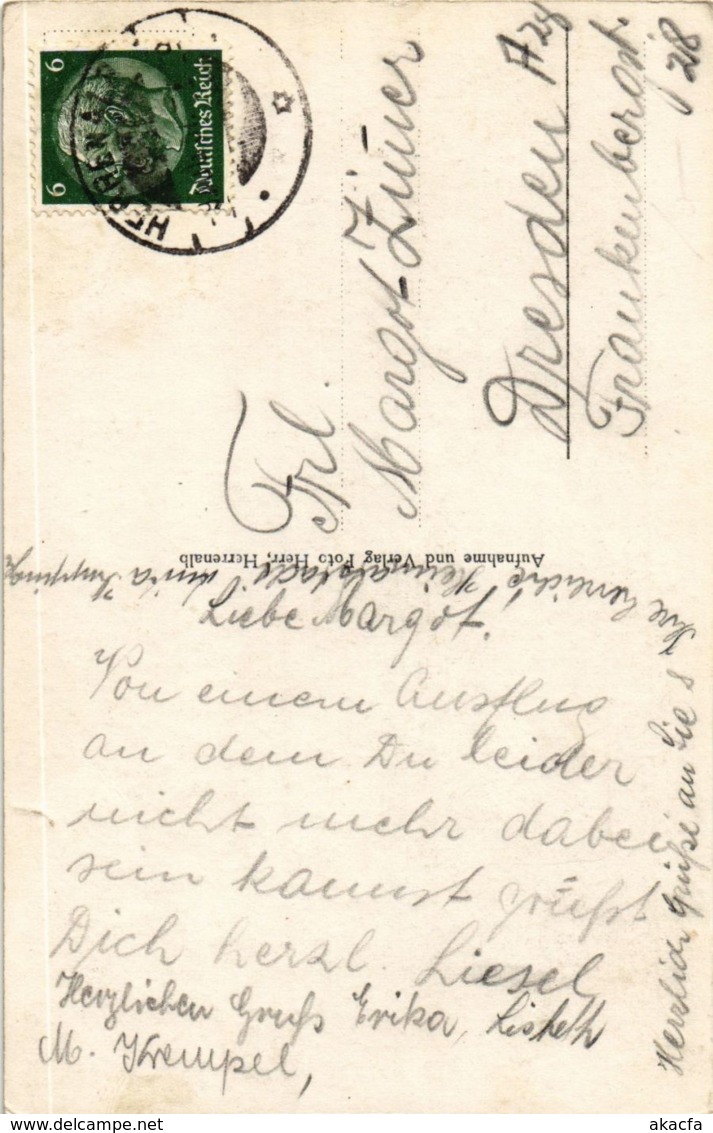 6 6
Deutsches Reich
HERRENA
Frl.
Margot Zimer
Dresden A28
Frankenbergstr.
28
Aufnahme und Verlag Foto Herr, Herrenalb
Liebe Margot!
Von einem Ausflug
an dem Du leider
nicht mehr dabei
sein kannst grüßt
Dich herzl. Liesel
Herzlichen Gruß Erika, Lisbeth
M. Krempel,
Herzliche Grüße an Sie
akpool-ansichtskarten.de akacfa